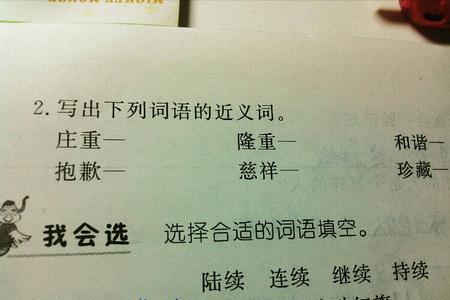 2.写出下列词语的近义词。
庄重— 隆重— 和谐—
抱歉— 慈祥— 珍藏—
我会选 选择合适的词语填空。
陆续 连续 继续 持续